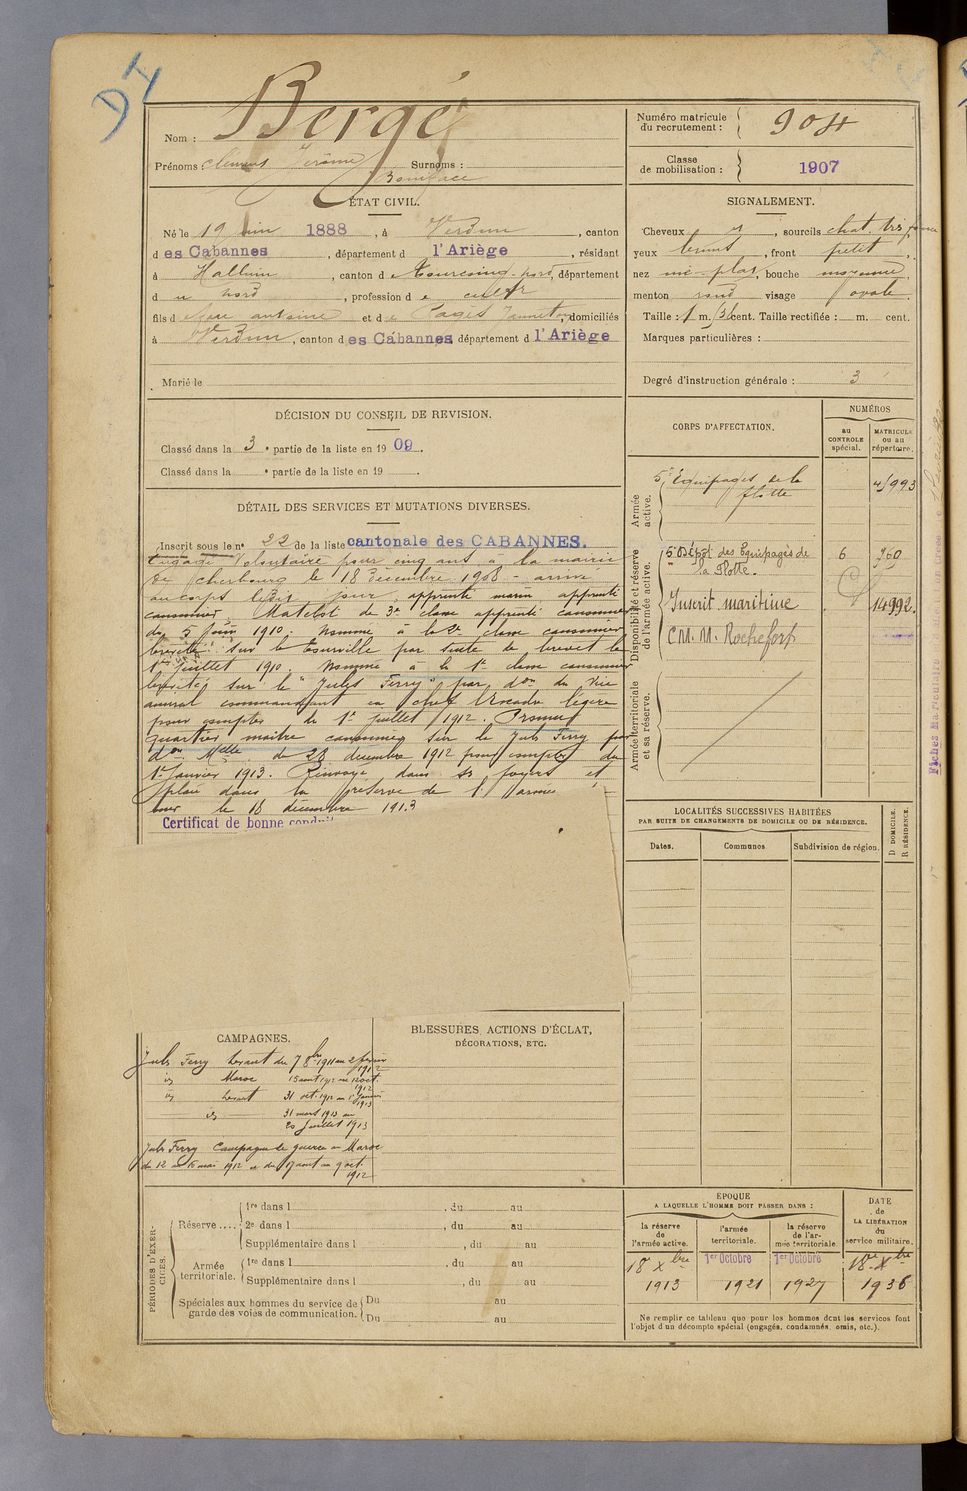 DI
Nom : Bergé
Prénoms : Clément Jérôme Surnoms :
Boniface
Numéro matricule
du recrutement : 904
Classe
de mobilisation : 1907
ÉTAT CIVIL.
Né le 19 juin 1888, à Verdun, canton
des Cabannes, département d l'Ariège, résidant
à Halluin, canton de Tourcoing-nord, département
du nord, profession de cultr
fils de Jean antoine et de Pagès Jannetou, domiciliés
à Verdun, canton des Cabannes département d l'Ariège
Marié le
SIGNALEMENT.
Cheveux et, sourcils chat. très foncé
yeux bruns, front petit,
nez me-plat, bouche moyenne,
menton rond visage ovale.
Taille : 1 m. cent. Taille rectifiée : m. cent.
Marques particulières :
Degré d'instruction générale : 3
DÉCISION DU CONSEIL DE REVISION.
Classé dans la 3e partie de la liste en 1909.
Classé dans la e partie de la liste en 19 .
CORPS D'AFFECTATION.
NUMÉROS
au
CONTROLE
spécial.
MATRICULE
ou au
répertoire.
Armée
active.
5e Equipages de la
flotte
4993
Disponibilité et réserve
de l'armée active.
5e Dépôt des Equipages de
la Flotte.
6 360
Inscrit maritime
14992.
C.M.M. Rochefort
Armée territoriale
et sa réserve.
DÉTAIL DES SERVICES ET MUTATIONS DIVERSES.
Inscrit sous le no 22 de la liste cantonale des CABANNES.
Engagé Volontaire pour cinq ans à la mairie
de Cherbourg le 18 décembre 1908 - arrivé
au corps ledit jour, apprenti marin apprenti
canonnier Matelot de 3e classe apprenti canonnier
du 5 Juin 1910. Nommé à la 2e classe canonnier
breveté sur le Tourville par suite de brevet le
1er Juillet 1910. Nommé à la 1e classe canonnier
breveté sur le "Jules Ferry" par don du Vice
amiral commandant en chef l'Escadre légère
pour compter du 1er juillet 1912. Promu
quartier maitre canonnier sur le Jules Ferry par
don Melle du 28 décembre 1912 pour compter du
1er Janvier 1913. Renvoyé dans ses foyers et
placé dans la réserve de l'armée
le 18 décembre 1913
Certificat de bonne conduit
LOCALITÉS SUCCESSIVES HABITÉES
PAR SUITE DE CHANGEMENTS DE DOMICILE OU DE RÉSIDENCE.
Dates.
Communes
Subdivision de région.
D DOMICILE.
R RÉSIDENCE.
CAMPAGNES.
Jules Ferry Levant du 7 8bre 1911 au 2 février
1912
id Maroc 15 aout 1912 au 12 oct.
1912
id Levant 31 oct. 1912 au 1er Janvier
1913
id 31 mars 1913 au
20 Juillet 1913
Jules Ferry Campagne de guerre au Maroc
du 12 au 15 mai 1912 et du 17 aout au 9 oct.
1912
BLESSURES, ACTIONS D'ÉCLAT,
DÉCORATIONS, ETC.
PÉRIODES D'EXER-
CICES.
Réserve ....
1re dans l , du au
2e dans l , du au
Supplémentaire dans l , du au
Armée
territoriale.
1re dans l , du au
Supplémentaire dans l , du au
Spéciales aux hommes du service de
garde des voies de communication.
Du au
Du au
ÉPOQUE
A LAQUELLE L'HOMME DOIT PASSER DANS :
la réserve
de
l'armée active.
l'armée
territoriale.
la réserve
de l'ar-
mée territoriale.
DATE
de
LA LIBÉRATION
du
service militaire.
18 Xbre
1913
1er Octobre
1921
1er Octobre
1927
18 Xbre
1936
Ne remplir ce tableau que pour les hommes dont les services font
l'objet d'un décompte spécial (engagés, condamnés, omis, etc.).